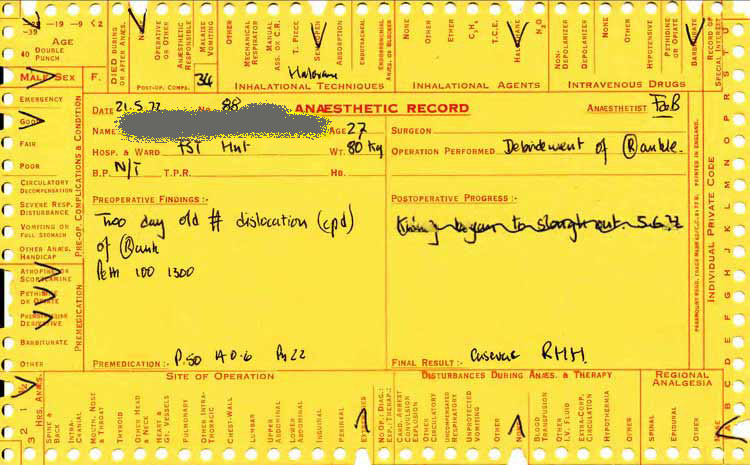 -39
-29 -19 -9 <2
40 DOUBLE PUNCH
AGE
MALE SEX F.
DIED DURING OR AFTER ANÆS.
NONE
OPERATIVE OR OTHER
ANÆSTHETIC RESPONSIBLE
MALAISE VOMITING
OTHER
POST-OP. COMPS.
34
MECHANICAL RESPIRATOR
MANUAL ASS. OR C.R.
T. PIECE
SEMI-OPEN
ABSORPTION
ENDOTRACHEAL
ENDOBRONCHIAL ANÆS. OR BLOCKER
Halothane
INHALATIONAL TECHNIQUES
NONE
OTHER
ETHER
C₃H₆
T.C.E.
HALOTHANE
N₂O
INHALATIONAL AGENTS
NON-DEPOLARIZER
DEPOLARIZER
OTHER
HYPOTENSIVE
PETHIDINE OR OPIATE
BARBITURATE
INTRAVENOUS DRUGS
RECORD OF SPECIAL INTEREST
DATE 21.5.77 No. 88 ANÆSTHETIC RECORD ANÆSTHETIST
NAME AGE 27 SURGEON
HOSP. & WARD FST Hut WT. 80 Kg OPERATION PERFORMED Debridement of (R) ankle.
B.P. N/T T.P.R. HB.
PREOPERATIVE FINDINGS :- POSTOPERATIVE PROGRESS :-
Two day old # dislocation (cpd) began to slough out. 5.6.77
of (R) ankle
Peth 100 1300
PREMEDICATION :- P.50 A 0.6 FINAL RESULT :- RHH.
EMERGENCY
GOOD
FAIR
POOR
CIRCULATORY DECOMPENSATION
SEVERE RESP. DISTURBANCE
VOMITING OR FULL STOMACH
OTHER ANÆS. HANDICAP
PRE-OP. COMPLICATIONS & CONDITION
ATROPINE OR SCOPOLAMINE
PETHIDINE OR OPIATE
PHENOTHIAZINE DERIVATIVE
BARBITURATE
OTHER
PREMEDICATION
3 2 1 ½
HRS. ANÆS.
SITE OF OPERATION
SPINE & BACK
INTRA-CRANIAL
MOUTH, NOSE & THROAT
THYROID
OTHER HEAD & NECK
HEART & GT. VESSELS
PULMONARY
OTHER INTRA-THORACIC
CHEST-WALL
LUMBAR
UPPER ABDOMINAL
LOWER ABDOMINAL
INGUINAL
PERINEAL
EXTREMITIES
NO OF. DIAG.: EXP.: THERAP.:
DISTURBANCES DURING ANÆS. & THERAPY
CARD. ARREST CONVULSION EXPLOSION
OTHER CIRCULATORY
UNCOMPENSATED RESPIRATORY
UNPROTECTED VOMITING
OTHER
NONE
BLOOD TRANSFUSION
OTHER I.V. FLUID
EXTRA-CORP. CIRCULATION
HYPOTHERMIA
OTHER
REGIONAL ANALGESIA
SPINAL
EPIDURAL
OTHER
NONE
INDIVIDUAL PRIVATE CODE
A B C D E F G H J K L M N O P Q R S T U
PRINTED IN ENGLAND.